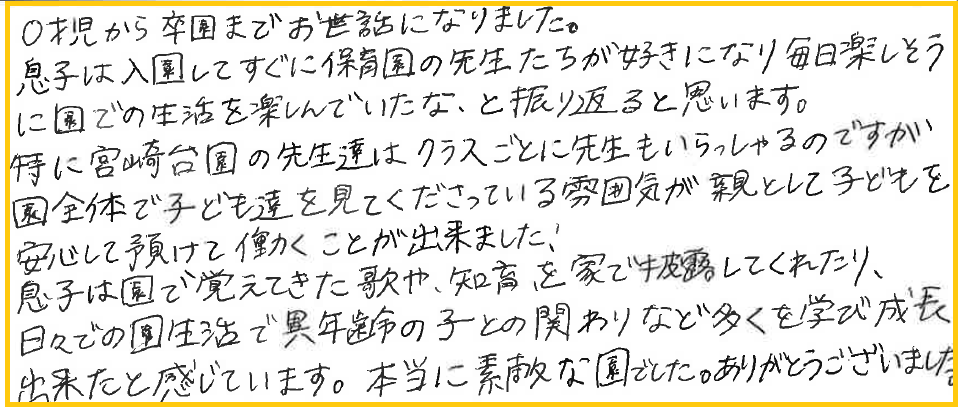 0才児から卒園までお世話になりました。
息子は入園してすぐに保育園の先生たちが好きになり毎日楽しそう
に園での生活を楽しんでいたな、と振り返ると思います。
特に宮崎台園の先生達はクラスごとに先生もいらっしゃるのですが
園全体で子ども達を見てくださっている雰囲気が親として子どもを
安心して預けて働くことが出来ました!
息子は園で覚えてきた歌や、知育、を家で披露してくれたり、
日々での園生活で異年齢の子との関わりなど多くを学び成長
出来たと感じています。本当に素敵な園でした。ありがとうございました